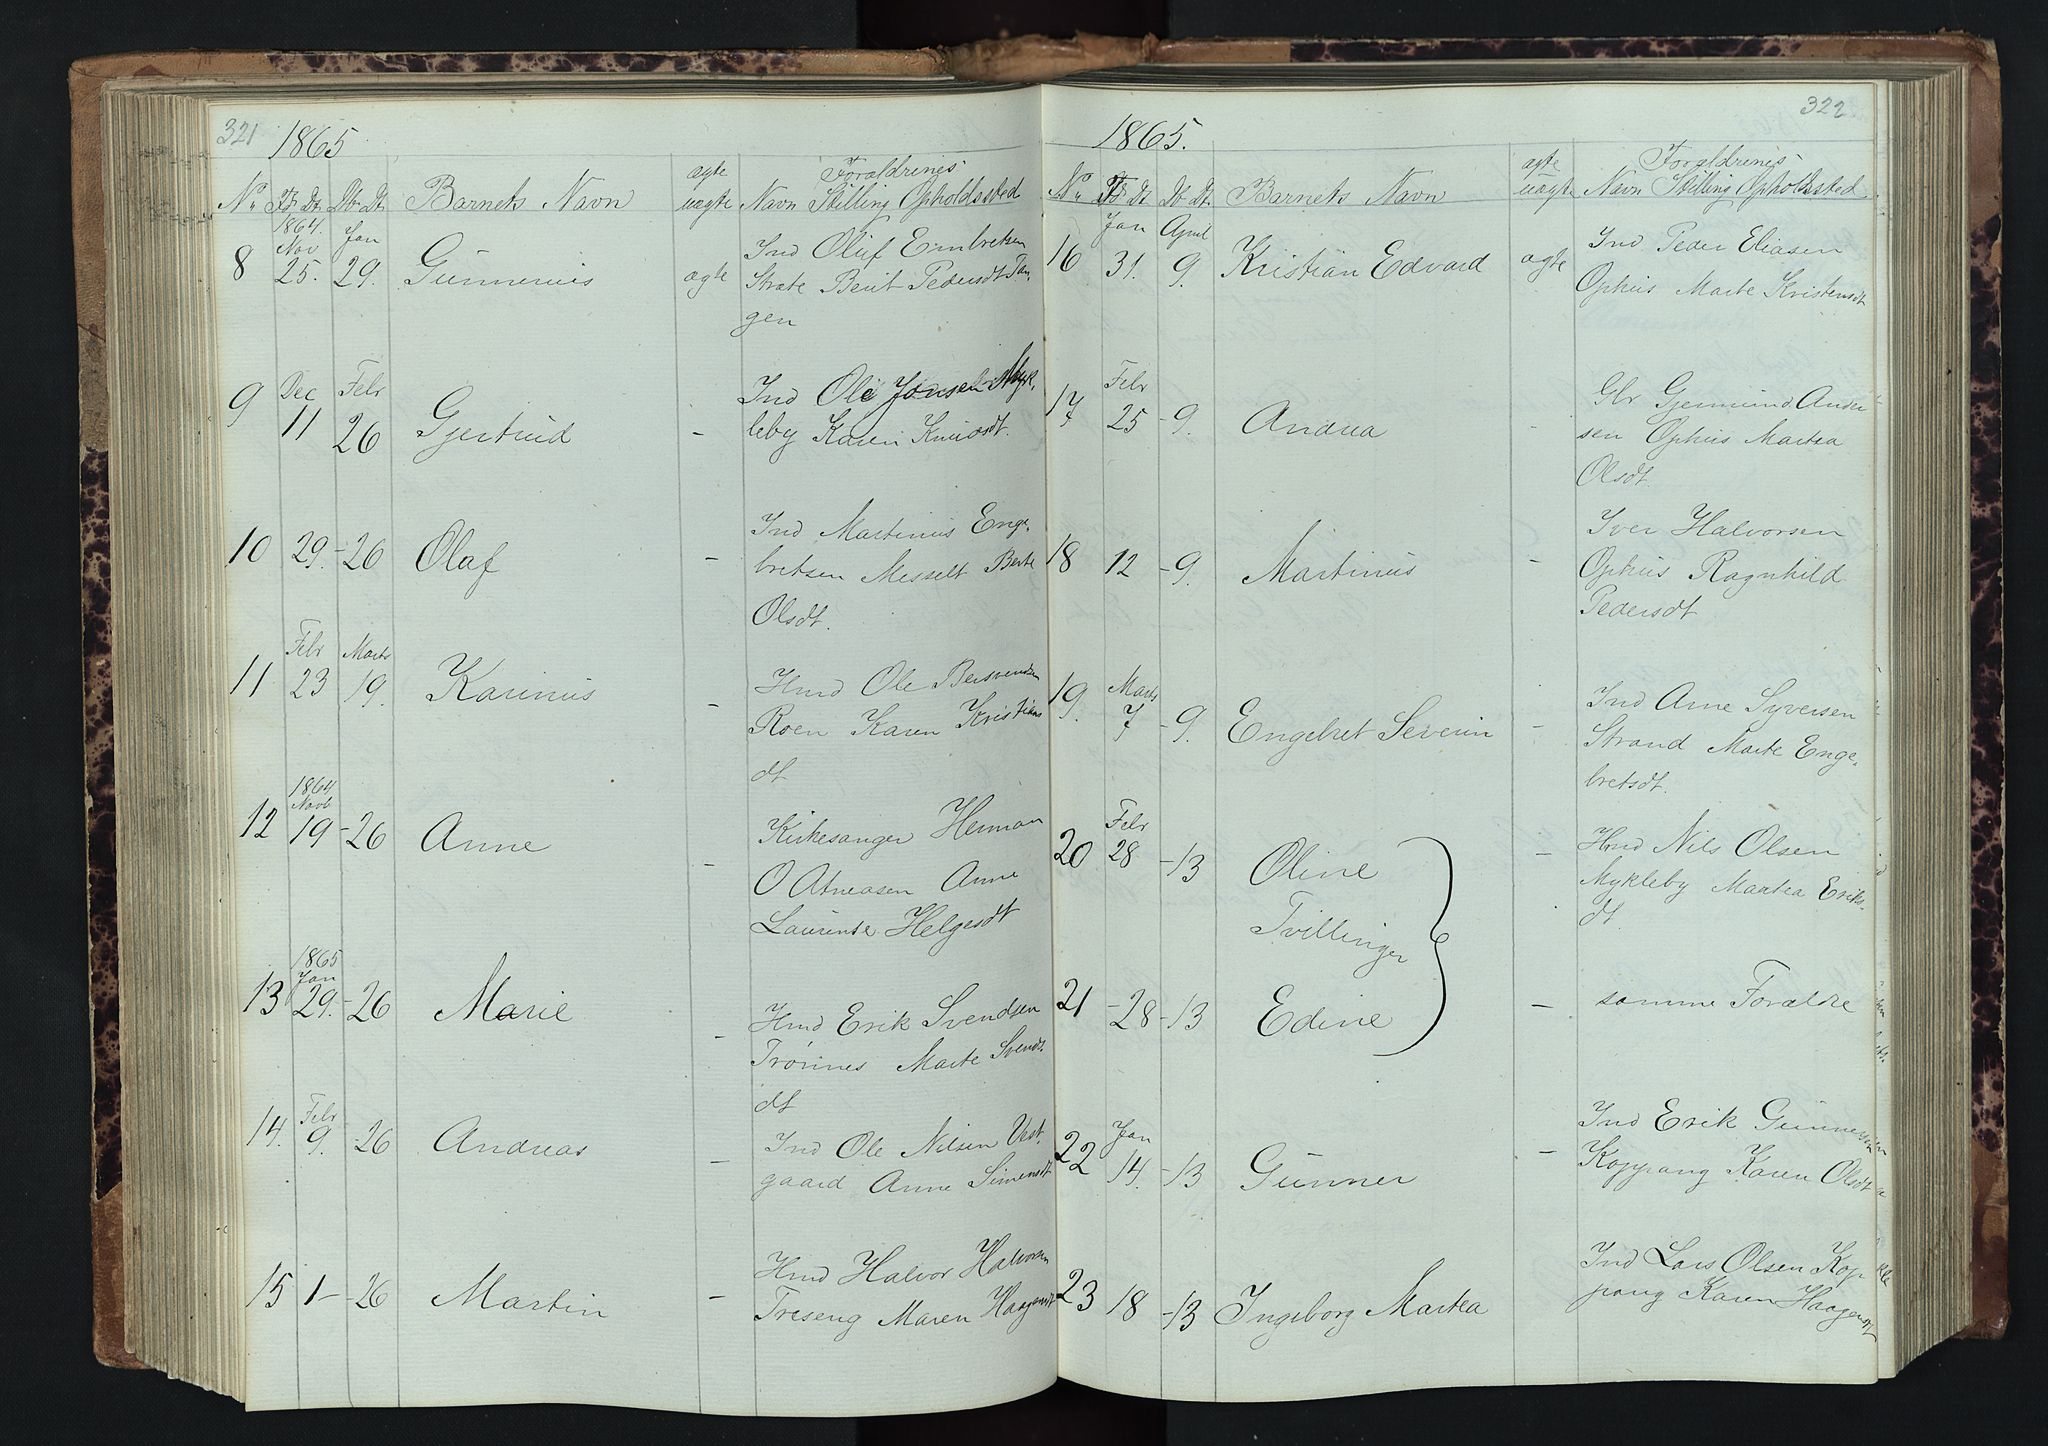 321
1865
No Fs Dt. Db Dt. Barnets Navn ægte uægte Forældrenes Navn Stilling Opholdssted
1864. Nov Jan
8 25. 29. Gunnerius ægte Ind Oluf Embretsen
Strate Berit Pedersdt Tan-
gen
Dec Febr
9 11 26 Gjertrud - Ind Ole Jonsen Myk-
leby Karen Knudsdt.
10 29.- 26 Olaf - Ind Martinus Enge-
bretsen Messelt Berte
Olsdt.
Febr Marts
11 23 19. Karinus - Hmd Ole Bersvendsen
Roen Karen Kristians
dt
1864 Novb
12 19 -26 Anne - Kirkesanger Herman
O Atneosen Anne
Laurentse Helgesdt
1865 Jan
13 29.-26 Marie - Hmd Erik Svendsen
Trønnes Marte Svends
dt
Febr
14. 9. -26 Andreas - Ind Ole Nilsen Vest-
gaard Anne Simensdt
15 1- -26 Martin - Hmd Halvor Halvorsen
Treseng Maren Haagensdt
322
1865.
No Fs Dt. Db Dt. Barnets Navn ægte uægte Forældrenes Navn Stilling Opholdssted
Jan April
16 31. 9. Kristian Edvard ægte Ind Peder Eliasen
Ophus Marte Kristensdt
Febr
17 25 -9. Andrea - Gbr Gjermund Ander-
sen Ophus Martea
Olsdt.
18 12 -9. Martinus - Iver Halvorsen
Ophus Ragnhild
Pedersdt
Marts
19. 7 -9. Engebret Severin - Ind Arne Syversen
Strand Marte Enge-
bretsdt.
Febr
20 28 -13 Oline - Hmd Nils Olsen
Mykleby Martea Eriks-
dt.
Tvillinger
21 -28 -13 Edine - samme Forældre
Jan
22 14. -13 Gunner - Ind Erik Gunnersen
Koppang Karen Olsdt
23 18 -13 Ingeborg Martea Ind Lars Olsen Kop
pang Karen Haagensdt